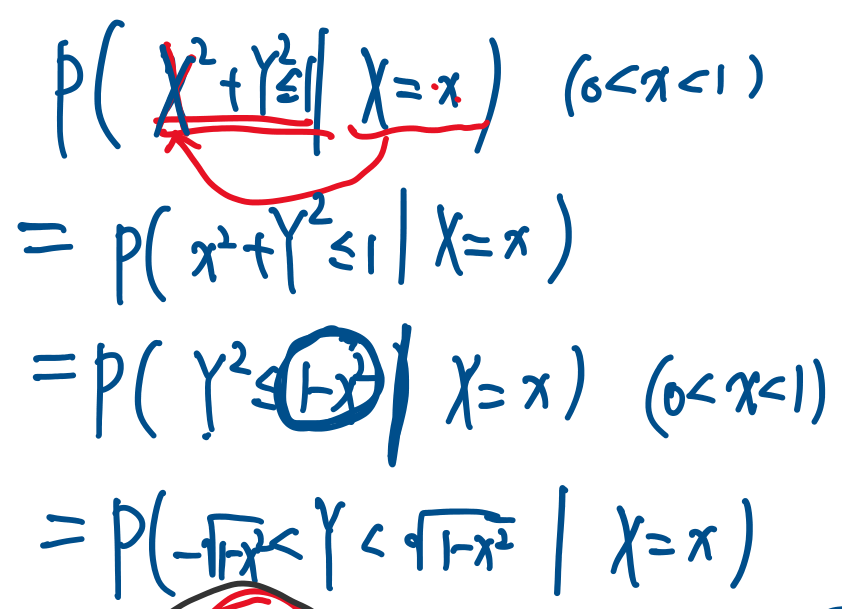 P( X² + Y² ≤ 1 | X = x ) (0 < x < 1)
= P( x² + Y² ≤ 1 | X = x )
= P( Y² ≤ 1-x² | X = x ) (0 < x < 1)
= P( -√(1-x²) < Y < √(1-x²) | X = x )